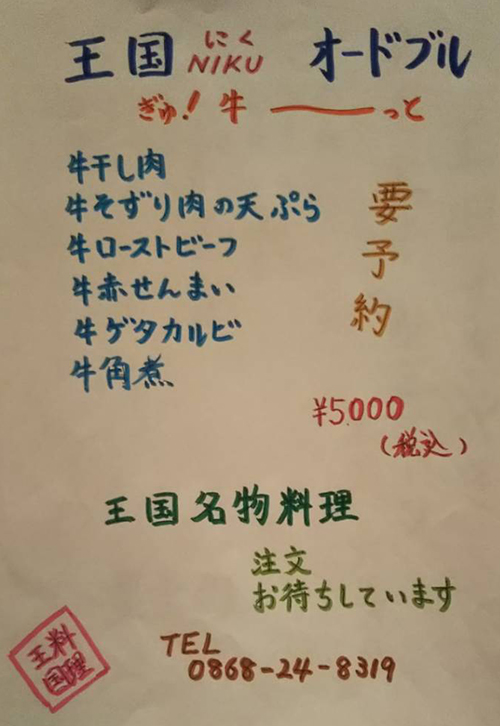 王国 にく NIKU オードブル
ぎゅ！牛 ーっと
牛干し肉
牛そずり肉の天ぷら
牛ローストビーフ
牛赤せんまい
牛ゲタカルビ
牛角煮
要予約
¥5000
(税込)
王国名物料理
注文
お待ちしています
TEL
0868-24-8319
王国料理